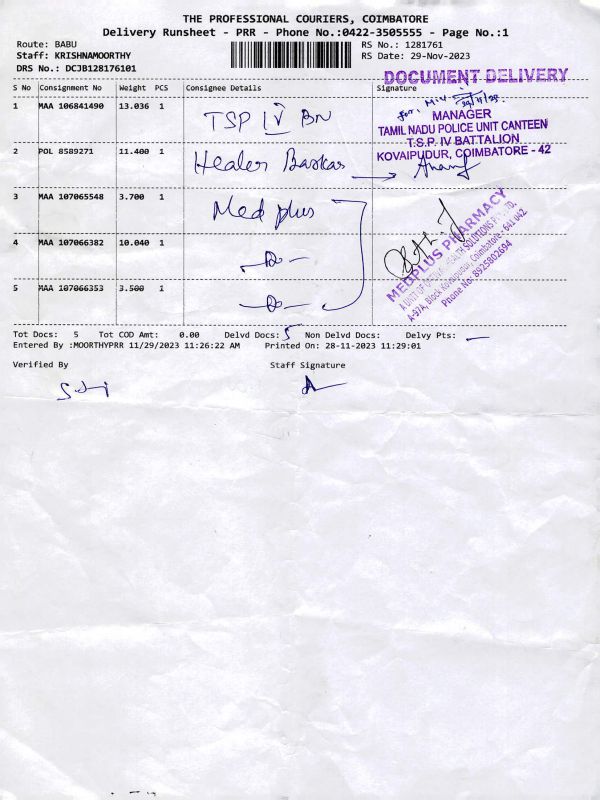 THE PROFESSIONAL COURIERS, COIMBATORE
Delivery Runsheet - PRR - Phone No.:0422-3505555 - Page No.:1
Route: BABU
Staff: KRISHNAMOORTHY
DRS No.: DCJB128176101
RS No.: 1281761
RS Date: 29-Nov-2023
DOCUMENT DELIVERY
S No Consignment No Weight PCS Consignee Details Signature
1 MAA 106841490 13.036 1 TSP IV BN
for.
MANAGER
TAMIL NADU POLICE UNIT CANTEEN
T.S.P. IV BATTALION
KOVAIPUDUR, COIMBATORE - 42
2 POL 8589271 11.400 1 Healer Baskar
3 MAA 107065548 3.700 1 Med plus
4 MAA 107066382 10.040 1 -Do-
5 MAA 107066353 3.500 1 -Do-
MEDPLUS PHARMACY
A-97A, Block Kovaipudur, Coimbatore - 641 042
Phone No: 8925802694
Tot Docs: 5 Tot COD Amt: 0.00 Delvd Docs: 5 Non Delvd Docs: Delvy Pts: -
Entered By :MOORTHYPRR 11/29/2023 11:26:22 AM Printed On: 28-11-2023 11:29:01
Verified By Staff Signature